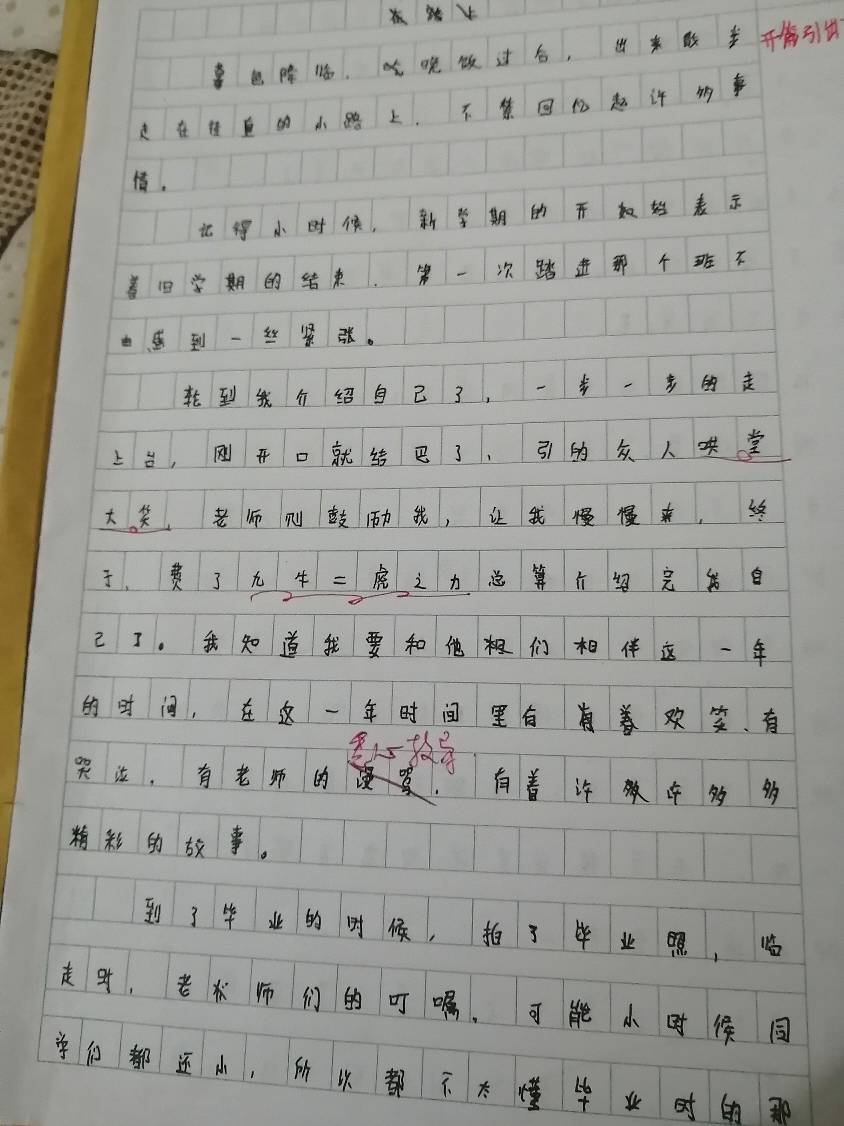 在路上
暮色降临，吃晚饭过后，出来散步
开篇引出
走在径直的小路上，不禁回忆起许多事
情。
记得小时候，新学期的开始表示
着旧学期的结束，第一次踏进那个班不
由感到一丝紧张。
轮到我介绍自己了，一步一步的走
上台，刚开口就结巴了，引的众人哄堂
大笑，老师则鼓励我，让我慢慢来，终
于，费了九牛二虎之力总算介绍完我自
己了。我知道我要和他们相伴这一年
的时间，在这一年时间里有着欢笑、有
悉心教导
哭泣，有老师的谩骂，有着许许多多
精彩的故事。
到了毕业的时候，拍了毕业照，临
走时，老师们的叮嘱，可能小时候同
学们都还小，所以都不太懂毕业时的那